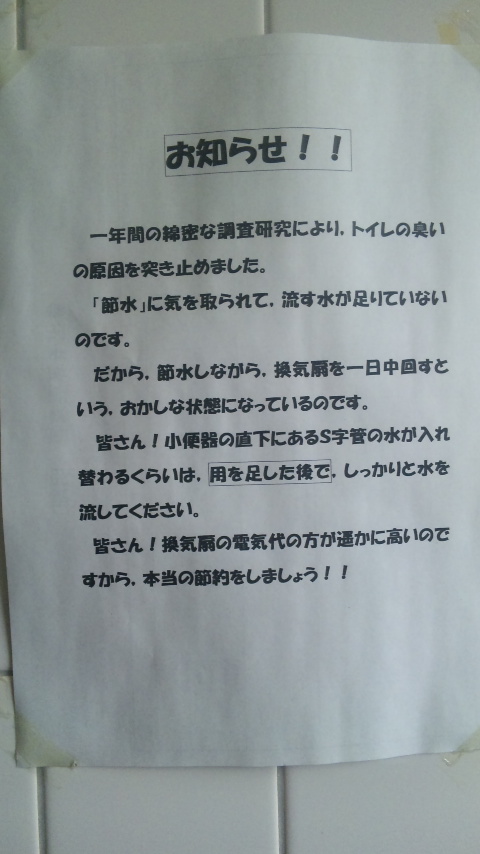 お知らせ！！
一年間の綿密な調査研究により，トイレの臭い
の原因を突き止めました。
「節水」に気を取られて，流す水が足りていない
のです。
だから，節水しながら，換気扇を一日中回すと
いう，おかしな状態になっているのです。
皆さん！小便器の直下にあるS字管の水が入れ
替わるくらいは，用を足した後で，しっかりと水を
流してください。
皆さん！換気扇の電気代の方が遥かに高いので
すから，本当の節約をしましょう！！